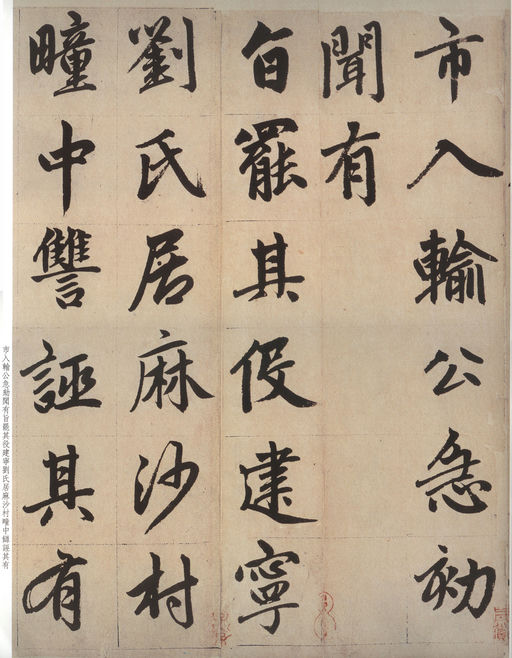 市入輸公急劾
聞有
旨罷其役建寧
劉氏居麻沙村
疃中讐誣其有
市入輸公急劾聞有旨罷其役建寧劉氏居麻沙村疃中讐誣其有